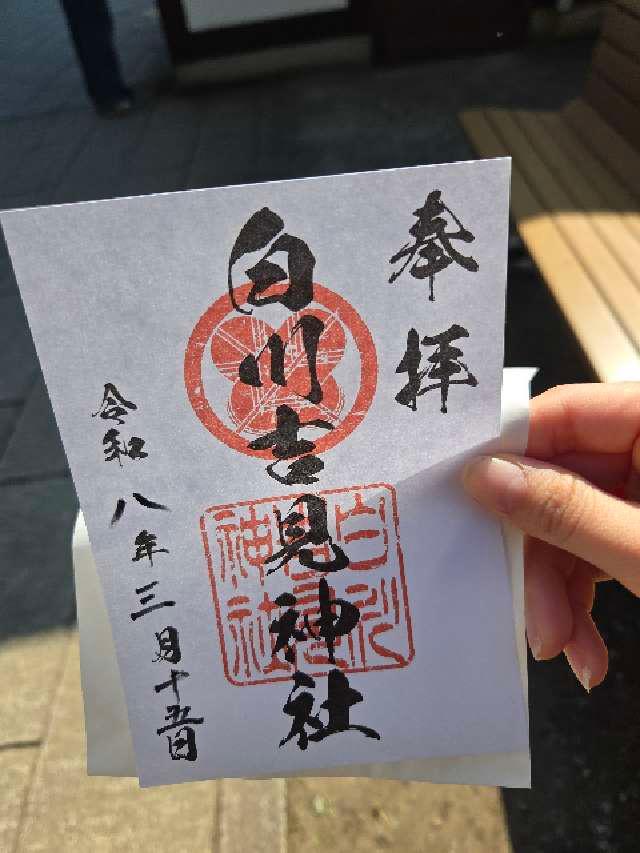 奉拝
白川吉見神社
令和八年三月十五日
白川吉見神社